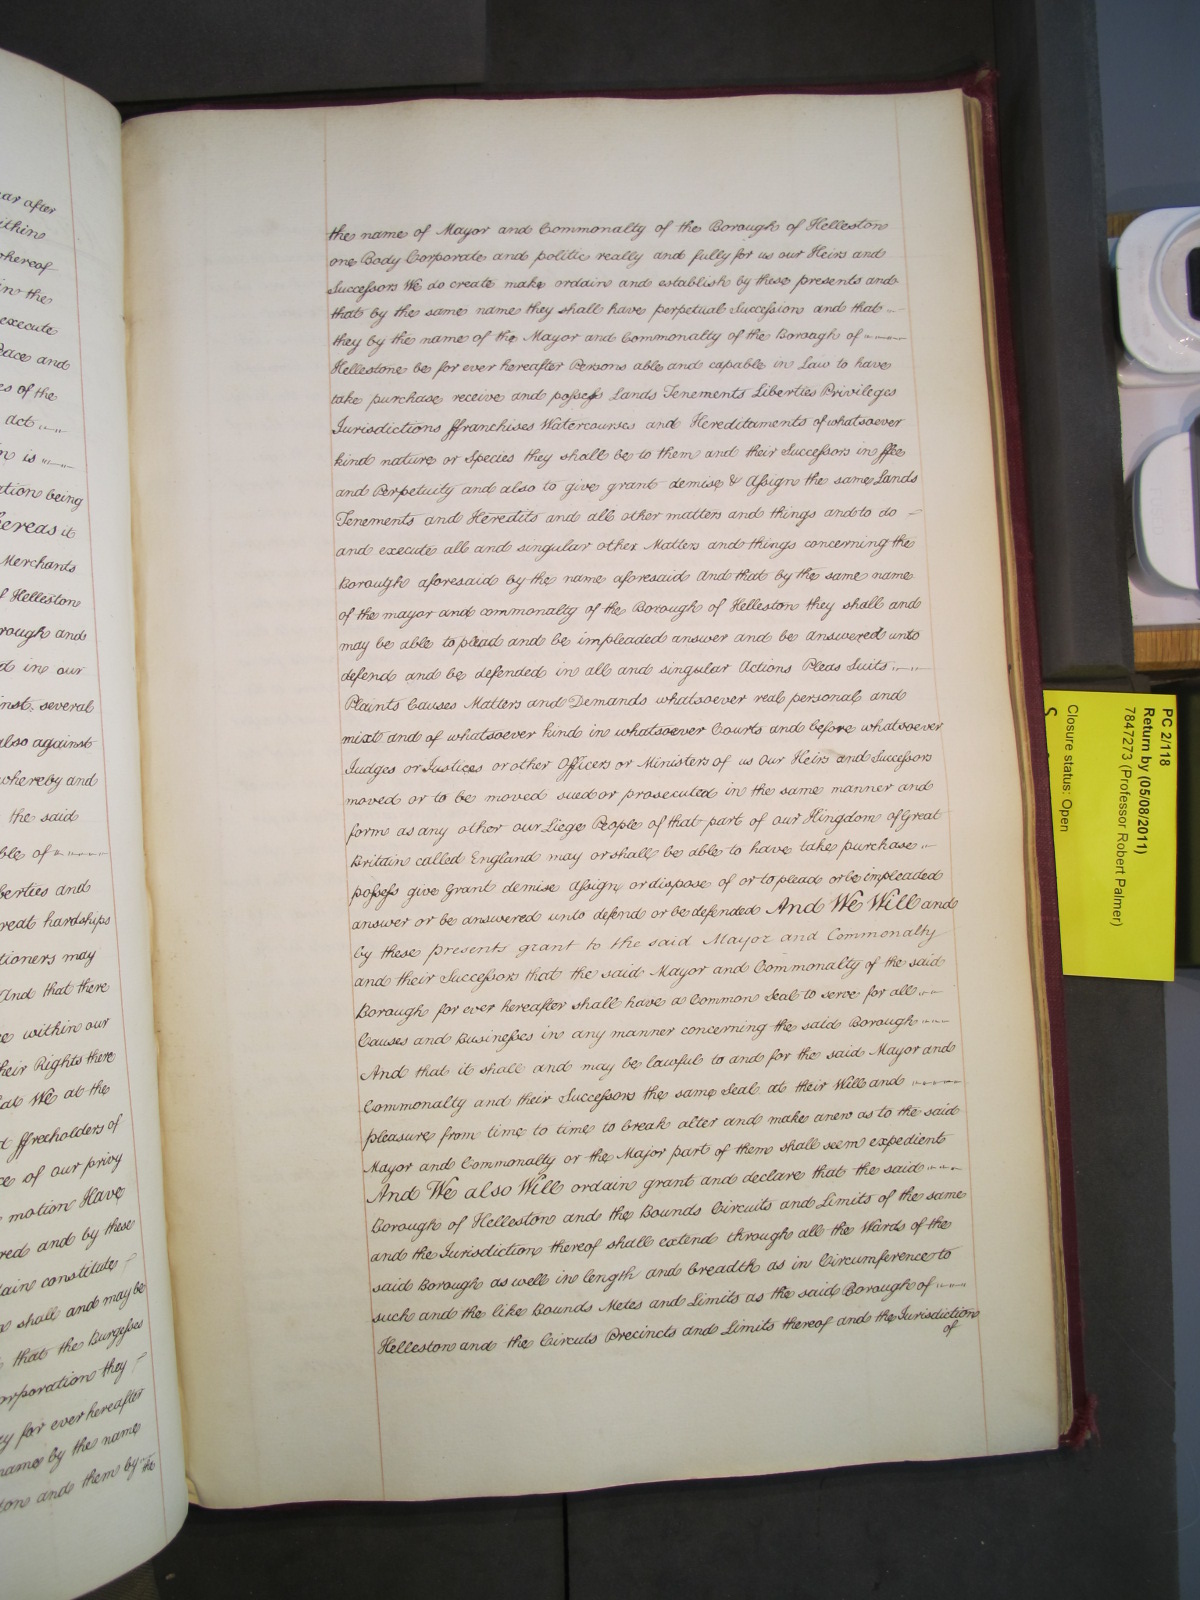 ar after
ithin
hereof
in the
execute
Peace and
es of the
act
n is
ation being
hereas it
Merchants
f Helleston
rough and
d in our
inst. several
also against
whereby and
the said
ble of
berties and
reat hardships
tioners may
And that there
ce within our
heir Rights there
at We at the
t ffreeholders of
ce of our privy
motion Have
red and by these
tain constitute
shall and may be
that the Burgesses
orporation they
y for ever hereafter
name by the name
ton and them by
the
the name of Mayor and Commonalty of the Borough of Helleston
one Body Corporate and politic really and fully for us our Heirs and
Successors We do create make ordain and establish by these presents and
that by the same name they shall have perpetual Succession and that
they by the name of the Mayor and Commonalty of the Borough of
Hellestone be for ever hereafter Persons able and capable in Law to have
take purchase receive and possess Lands Tenements Liberties Privileges
Jurisdictions ffranchises Watercourses and Hereditaments of whatsoever
kind nature or Species they shall be to them and their Successors in ffee
and Perpetuity and also to give grant demise & Assign the same Lands
Tenements and Heredits and all other matters and things and to do
and execute all and singular other Matters and things concerning the
Borough aforesaid by the name aforesaid And that by the same name
of the mayor and commonalty of the Borough of Helleston they shall and
may be able to plead and be impleaded answer and be answered unto
defend and be defended in all and singular Actions Pleas Suits
Plaints Causes Matters and Demands whatsoever real personal and
mixt and of whatsoever kind in whatsoever Courts and before whatsoever
Judges or Justices or other Officers or Ministers of us our Heirs and Successors
moved or to be moved sued or prosecuted in the same manner and
form as any other our Liege People of that part of our Kingdom of Great
Britain called England may or shall be able to have take purchase
possess give Grant demise Assign or dispose of or to plead or be impleaded
answer or be answered unto defend or be defended And We Will and
by these presents grant to the said Mayor and Commonalty
and their Successors that the said Mayor and Commonalty of the said
Borough for ever hereafter shall have a Common Seal to serve for all
Causes and Businesses in any manner concerning the said Borough
And that it shall and may be lawful to and for the said Mayor and
Commonalty and their Successors the same Seal at their Will and
pleasure from time to time to break alter and make anew as to the said
Mayor and Commonalty or the Major part of them shall seem expedient
And We also Will ordain grant and declare that the said
Borough of Helleston and the Bounds Circuits and Limits of the same
and the Jurisdiction thereof shall extend through all the Wards of the
said Borough as well in length and breadth as in Circumference to
such and the like Bounds Metes and Limits as the said Borough of
Helleston and the Circuts Precincts and Limits thereof and the Jurisdiction
of
PC 2/118
Return by (05/08/2011)
7847273 (Professor Robert Palmer)
Closure status: Open